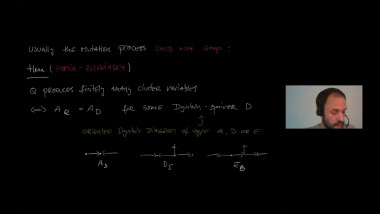 Usually the mutation process does not stop:
Thm (Fomin-Zelevinsky)
Q produces finitely many cluster variables
⟺ A_Q = A_D for some Dynkin-quiver D
oriented Dynkin Diagram of type A, D or E
A_3 D_5 E_8